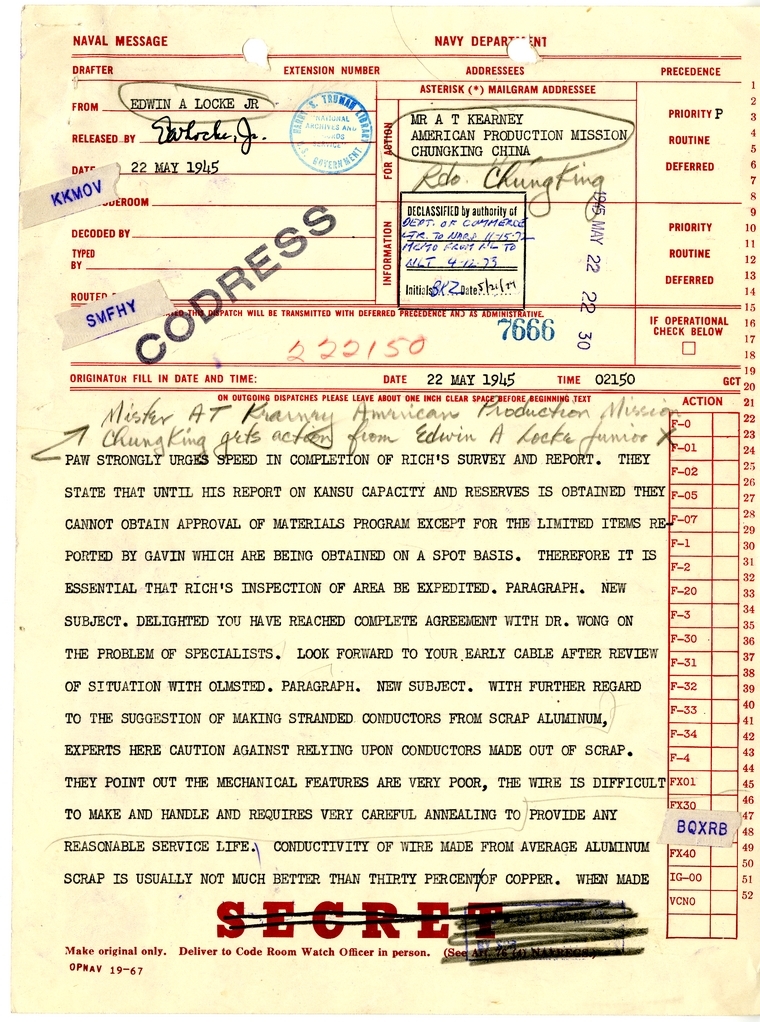 NAVAL MESSAGE NAVY DEPARTMENT
DRAFTER EXTENSION NUMBER ADDRESSEES PRECEDENCE
ASTERISK (*) MAILGRAM ADDRESSEE
FROM EDWIN A LOCKE JR
RELEASED BY EALocke, Jr.
DATE 22 MAY 1945
HARRY S. TRUMAN LIBRARY
NATIONAL
ARCHIVES AND
RECORDS
SERVICE
U.S. GOVERNMENT
FOR ACTION
MR A T KEARNEY
AMERICAN PRODUCTION MISSION
CHUNGKING CHINA
Rdo. ChungKing
PRIORITY P
ROUTINE
DEFERRED
KKMOV
CODEROOM
DECODED BY
TYPED
BY
ROUTED
SMFHY
CODRESS
INFORMATION
DECLASSIFIED by authority of
DEPT. OF COMMERCE
LTR. TO NARS 11-15-72
MEMO FROM NL TO
NLT 4-12-73
Initials Date 5/21/74
1945 MAY 22 22 30
PRIORITY
ROUTINE
DEFERRED
THIS DISPATCH WILL BE TRANSMITTED WITH DEFERRED PRECEDENCE AND AS ADMINISTRATIVE.
222150
7666
IF OPERATIONAL
CHECK BELOW
ORIGINATOR FILL IN DATE AND TIME: DATE 22 MAY 1945 TIME 02150 GCT
ON OUTGOING DISPATCHES PLEASE LEAVE ABOUT ONE INCH CLEAR SPACE BEFORE BEGINNING TEXT
ACTION
Mister AT Krainry American Production Mission
ChungKing gets action from Edwin A Locke Junior X
PAW STRONGLY URGES SPEED IN COMPLETION OF RICH'S SURVEY AND REPORT. THEY
STATE THAT UNTIL HIS REPORT ON KANSU CAPACITY AND RESERVES IS OBTAINED THEY
CANNOT OBTAIN APPROVAL OF MATERIALS PROGRAM EXCEPT FOR THE LIMITED ITEMS RE-
PORTED BY GAVIN WHICH ARE BEING OBTAINED ON A SPOT BASIS. THEREFORE IT IS
ESSENTIAL THAT RICH'S INSPECTION OF AREA BE EXPEDITED. PARAGRAPH. NEW
SUBJECT. DELIGHTED YOU HAVE REACHED COMPLETE AGREEMENT WITH DR. WONG ON
THE PROBLEM OF SPECIALISTS. LOOK FORWARD TO YOUR EARLY CABLE AFTER REVIEW
OF SITUATION WITH OLMSTED. PARAGRAPH. NEW SUBJECT. WITH FURTHER REGARD
TO THE SUGGESTION OF MAKING STRANDED CONDUCTORS FROM SCRAP ALUMINUM,
EXPERTS HERE CAUTION AGAINST RELYING UPON CONDUCTORS MADE OUT OF SCRAP.
THEY POINT OUT THE MECHANICAL FEATURES ARE VERY POOR, THE WIRE IS DIFFICULT
TO MAKE AND HANDLE AND REQUIRES VERY CAREFUL ANNEALING TO PROVIDE ANY
REASONABLE SERVICE LIFE. CONDUCTIVITY OF WIRE MADE FROM AVERAGE ALUMINUM
SCRAP IS USUALLY NOT MUCH BETTER THAN THIRTY PERCENT OF COPPER. WHEN MADE
F-0
F-01
F-02
F-05
F-07
F-1
F-2
F-20
F-3
F-30
F-31
F-32
F-33
F-34
F-4
FX01
FX30
BQXRB
FX40
IG-00
VCNO
1
2
3
4
5
6
7
8
9
10
11
12
13
14
15
16
17
18
19
20
21
22
23
24
25
26
27
28
29
30
31
32
33
34
35
36
37
38
39
40
41
42
43
44
45
46
47
48
49
50
51
52
SECRET
Make original only. Deliver to Code Room Watch Officer in person. (See Art. 76 (4) NAVREGS.)
OPNAV 19-67